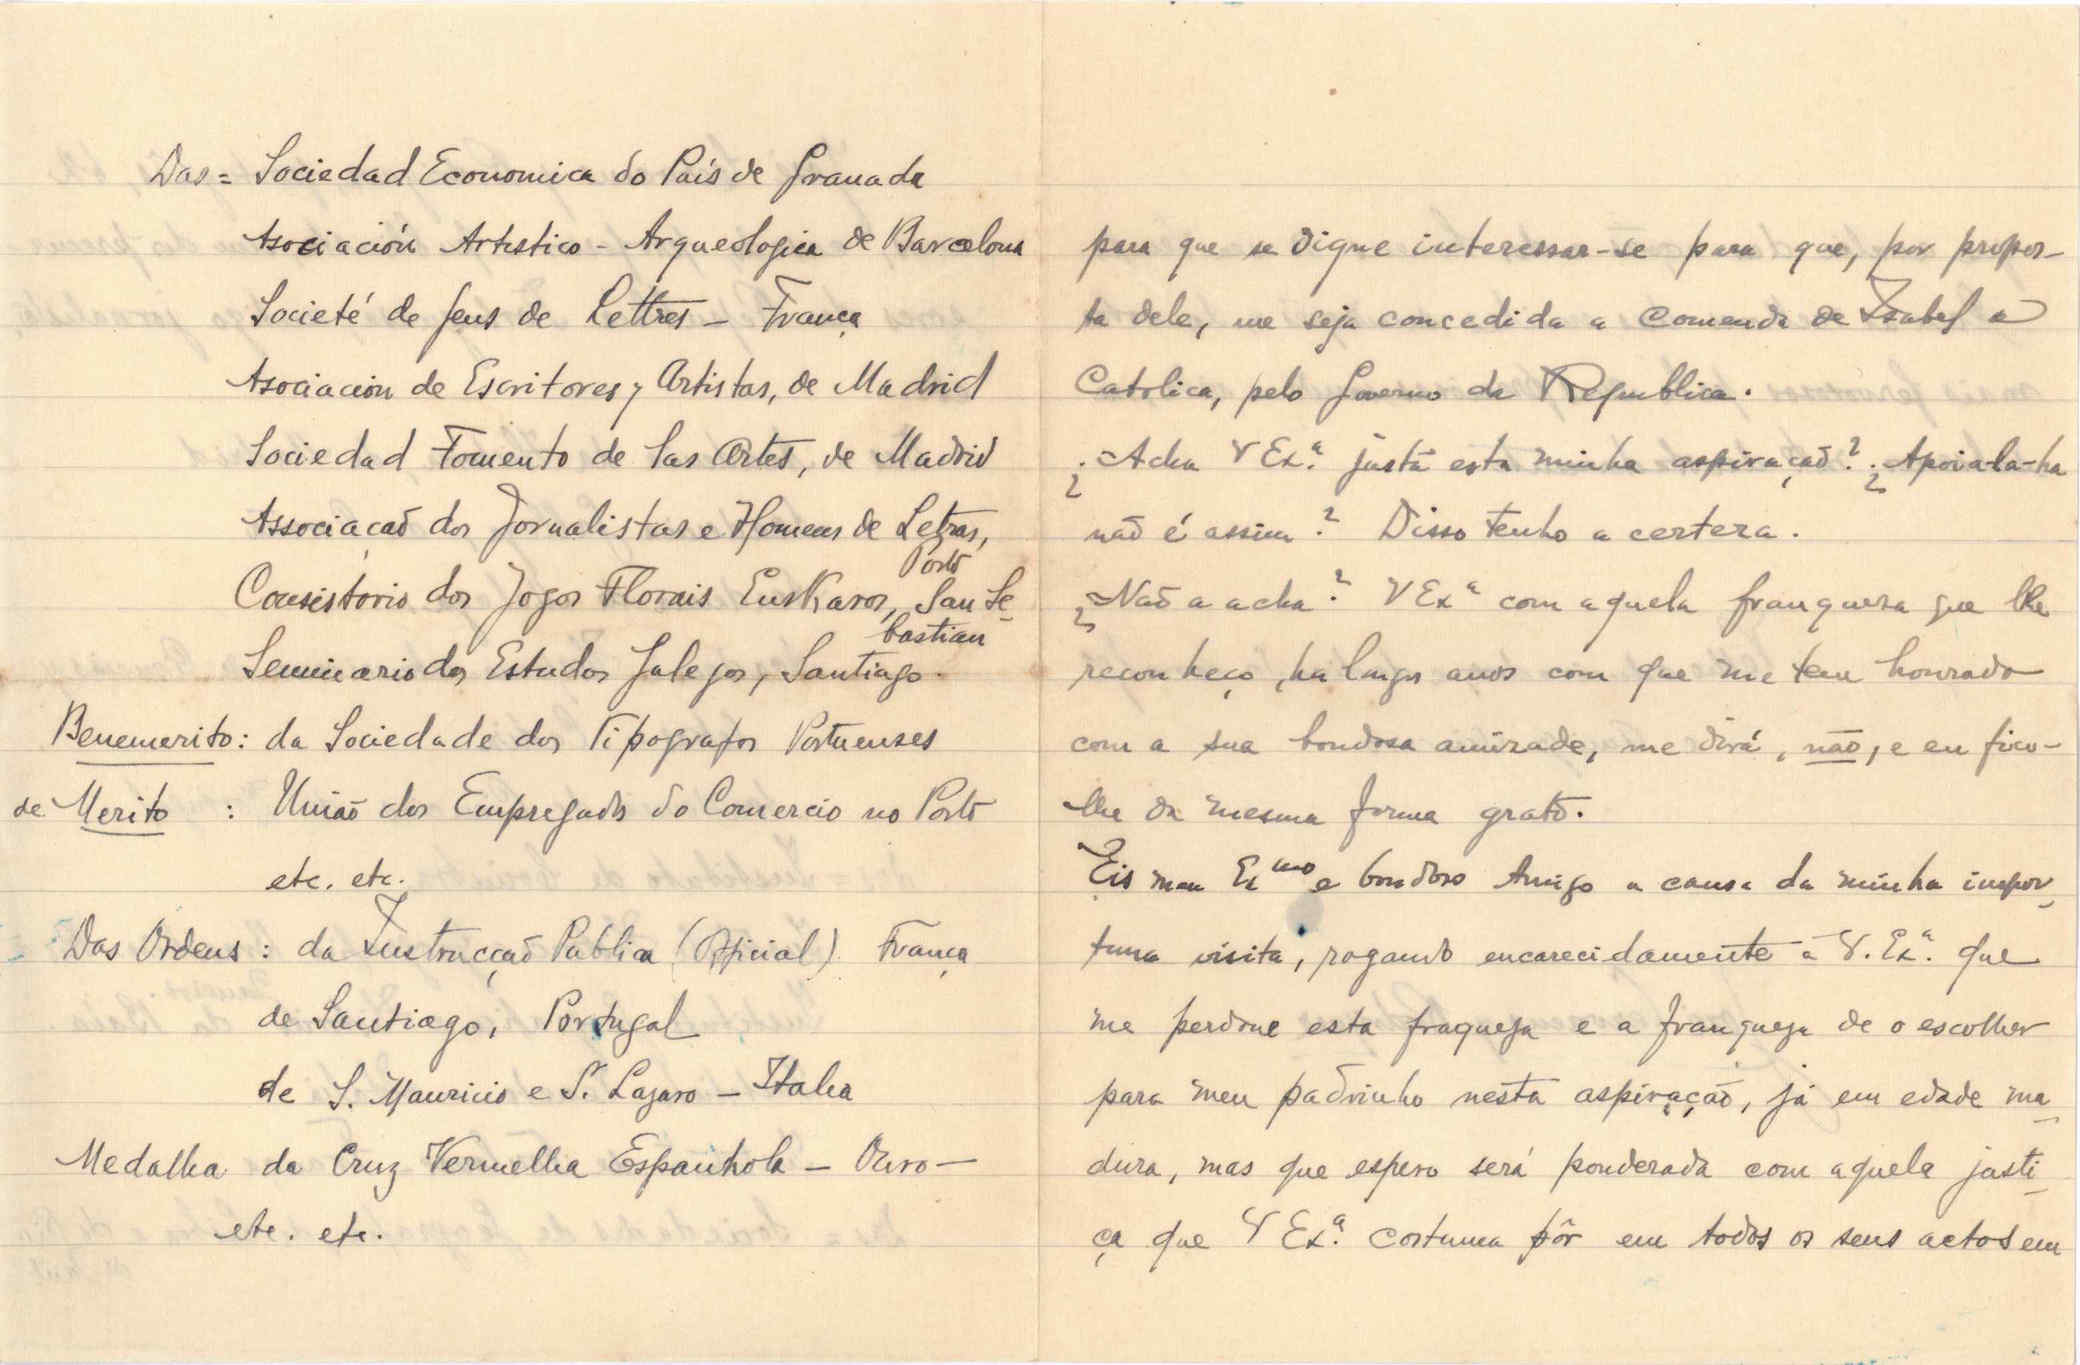 Das = Sociedad Economica do País de Granada
Asociación Artistico - Arqueologica de Barcelona
Societé de Gens de Lettres - França
Asociación de Escritores y Artistas, de Madrid
Sociedad Fomento de las Artes, de Madrid
Associação dos Jornalistas e Homens de Letras,
Porto
Consistorio dos Jogos Florais Euskaros, San Se-
bastian
Seminario dos Estudos Galegos, Santiago.
Benemerito: da Sociedade dos Tipografos Portuenses
de Merito : União dos Empregados do Comercio no Porto
etc. etc.
Das Ordens : da Instrucção Publica (Oficial) França
de Santiago, Portugal
de S. Mauricio e S. Lazaro - Italia
Medalha da Cruz Vermelha Espanhola - Ouro -
etc. etc.
para que se digne interessar-se para que, por propos-
ta dele, me seja concedida a Comenda de Izabel a
Catolica, pelo Governo da Republica.
¿Acha V Ex.ª justa esta minha aspiração? ¿Apoia-la-ha
não é assim? Disso tenho a certeza.
¿Não a acha? V Exª com aquela franqueza que lhe
reconheço, ha longos anos com que me tem honrado
com a sua bondosa amizade, me dirá, não, e eu fico-
lhe da mesma forma grato.
Eis meu Exmo e bondoso Amigo a causa da minha impor-
tuna visita, rogando encarecidamente a V. Ex.ª que
me perdone esta fraqueza e a franqueza de o escolher
para meu padrinho nesta aspiração, já em edade ma-
dura, mas que espero será ponderada com aquela justi-
ça que V Ex.ª costuma pôr em todos os seus actos em